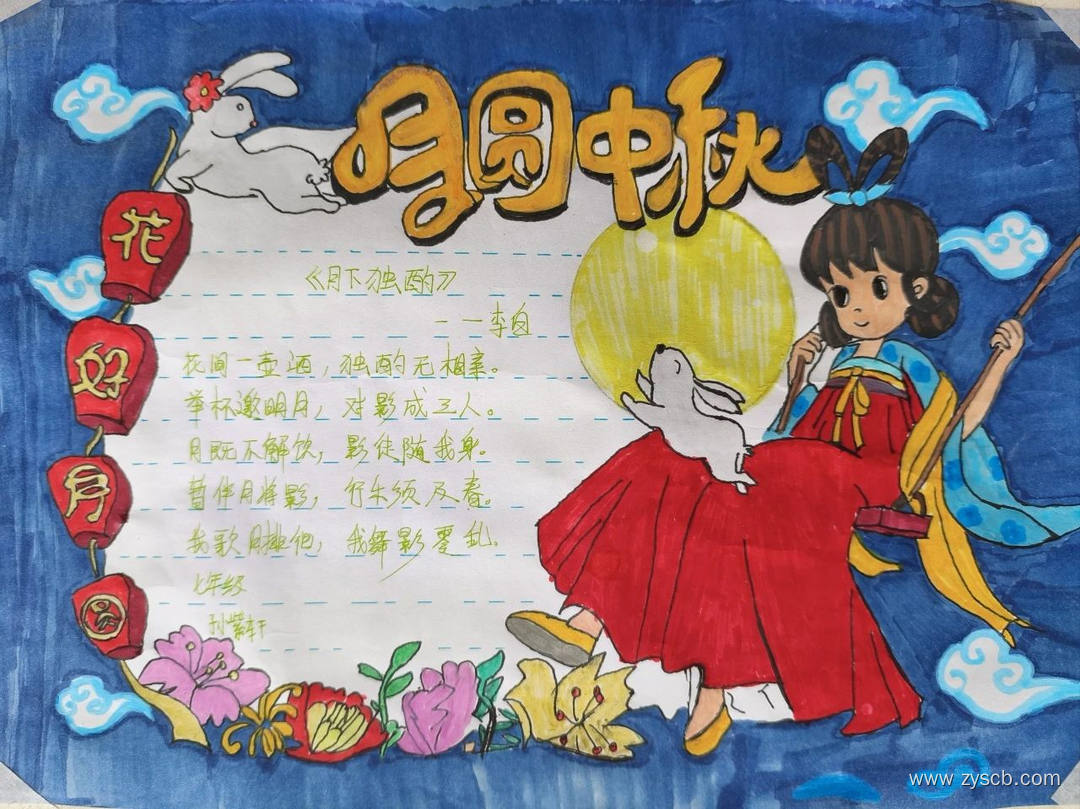 月圆中秋
花好月圆
《月下独酌》
——李白
花间一壶酒，独酌无相亲。
举杯邀明月，对影成三人。
月既不解饮，影徒随我身。
暂伴月将影，行乐须及春。
我歌月徘徊，我舞影零乱。
七年级
孙紫轩
www.zyscb.com